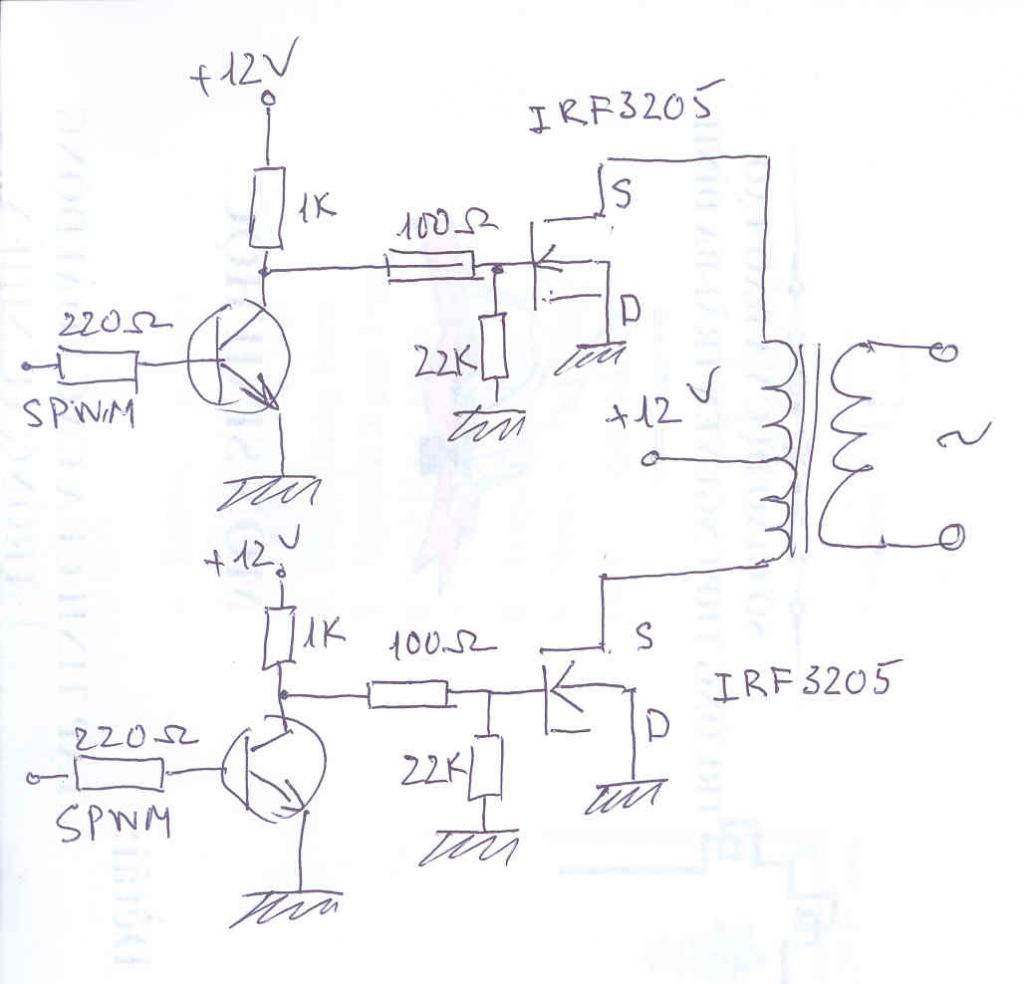 +12V
IRF3205
1K
S
100Ω
220Ω
D
22K
SPWM
+12V
~
+12V
1K
100Ω
S
IRF3205
220Ω
D
22K
SPWM